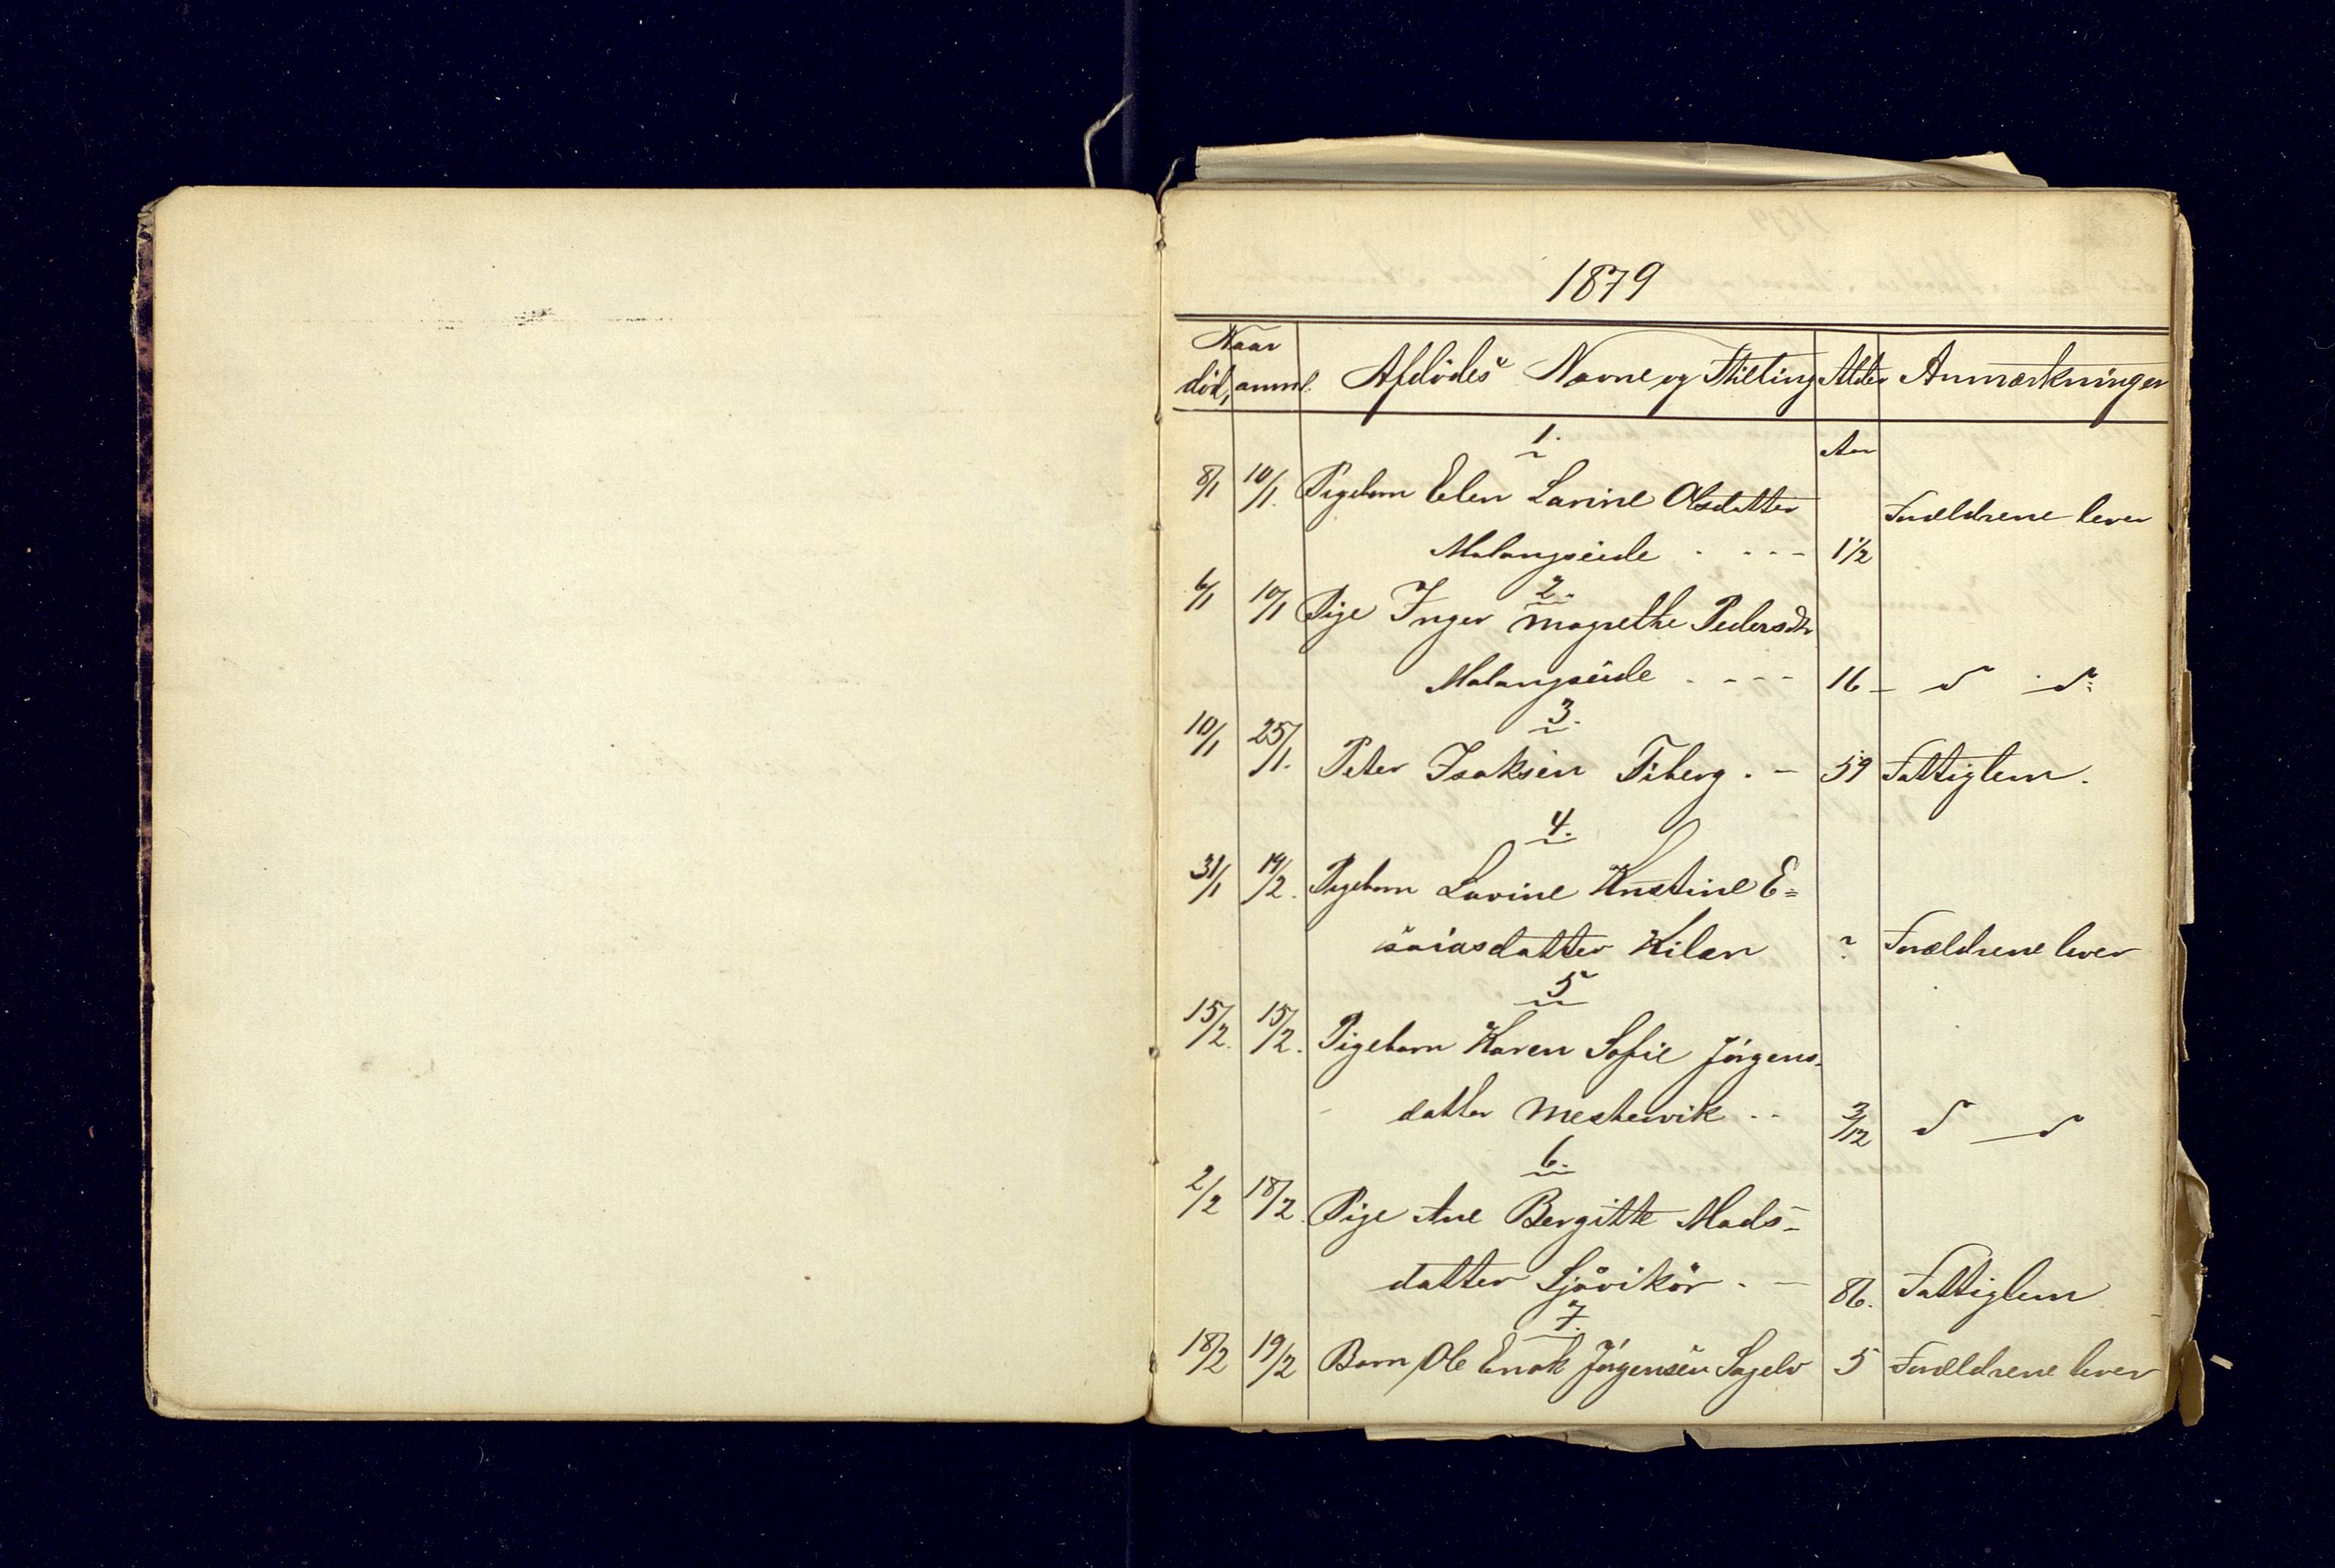 1879
Naar
död, anml. Afdödes Navne og Stilling Alder Anmærkninger
1. Aar
8/1 10/1. Pigebarn Elen Lavine Olsdatter Forældrene lever
Malangseide . - - - 1 1/2
2.
6/1 10/1 Pige Inger Magrethe Pedersdtr
Malangseide - - - - 16 - d d:
3.
10/1 25/1. Peter Isaksen Fiberg . - 59 Fattiglem.
4.
31/1 14/2. Pigebarn Lavine Kristine E=
saiasdatter Kilen ? Forældrene lever
5
15/2. 15/2. Pigebarn Karen Sofie Jörgens-
datter Mestervik - - 3/12 d - d
6.
2/2 18/2. Pige Ane Bergitte Mads-
datter Sjövikör . - 86. Fattiglem
7.
18/2 19/2 Barn Ole Enok Jörgensen Sagelv 5 Forældrene lever